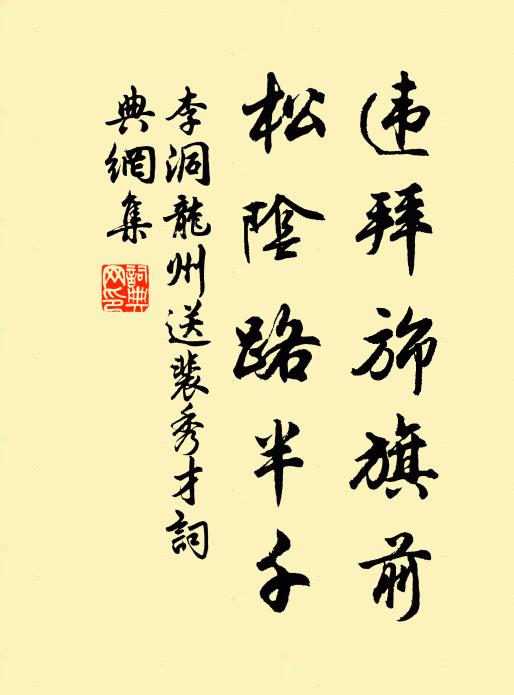 违拜旆旗前
松陰路半千
李洞龍州送裴秀才詞
典網集
詞典
网印